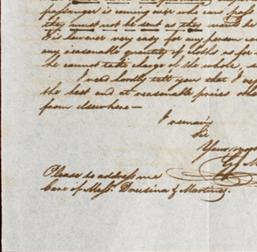 they must not be sent as they would be
It is however very easy for any person
any reasonable quantity of cloths as for
he cannot take charge of the whole,
I need hardly tell you that I
the best and at reasonable prices
from elsewhere —
I remain
Sir
Your
Please to address me
Care of Messrs. Drusina & Martinez